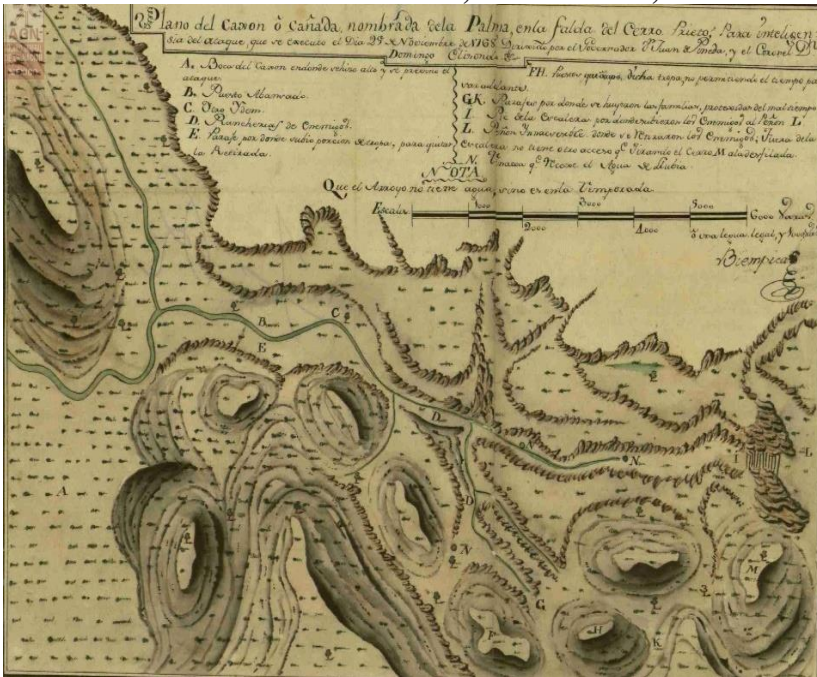 Plano del Caxon ò Cañada, nombrada dela Palma, enla falda del Cerro Prieto, Para inteligen
sia del ataque, que se executò el Dia 25 de Noviembre de por el Governador Dn Juan de Pineda, y el Coronel Dn
Domingo
AGN
A. Boca del Caxon endonde se hizo alto y se previno el
ataque.
B. Puesto Abanzado.
C. Otro Ydem.
D. Rancherias de Enemigos.
E. Paraje por donde subio porcion de tropa, para quitar
la Retirada.
FH. Puestos dicha tropa, no permitiendo el tiempo pa
sar adelante.
GK. Parajes por donde se huyeron las familias, del mal tiempo
I. Pie dela Escalera por donde subieron los Enemigos al Peñon L.
L. Peñon Ynaccesible donde se los Enemigos, Fuera dela
Escalera no tiene otro acceso qe Jirando el Cerro M ala desfilada
N. qe Recoxe el Agua de Llubia
NOTA
Que el Arroyo no tiene agua, sino es enla Temporada
Escala
1000
2000
3000
4000
5000
6000 Varas
ò una legua legal, y
B
C
E
D
D
N
I
L
A
N
G
F
H
K
M